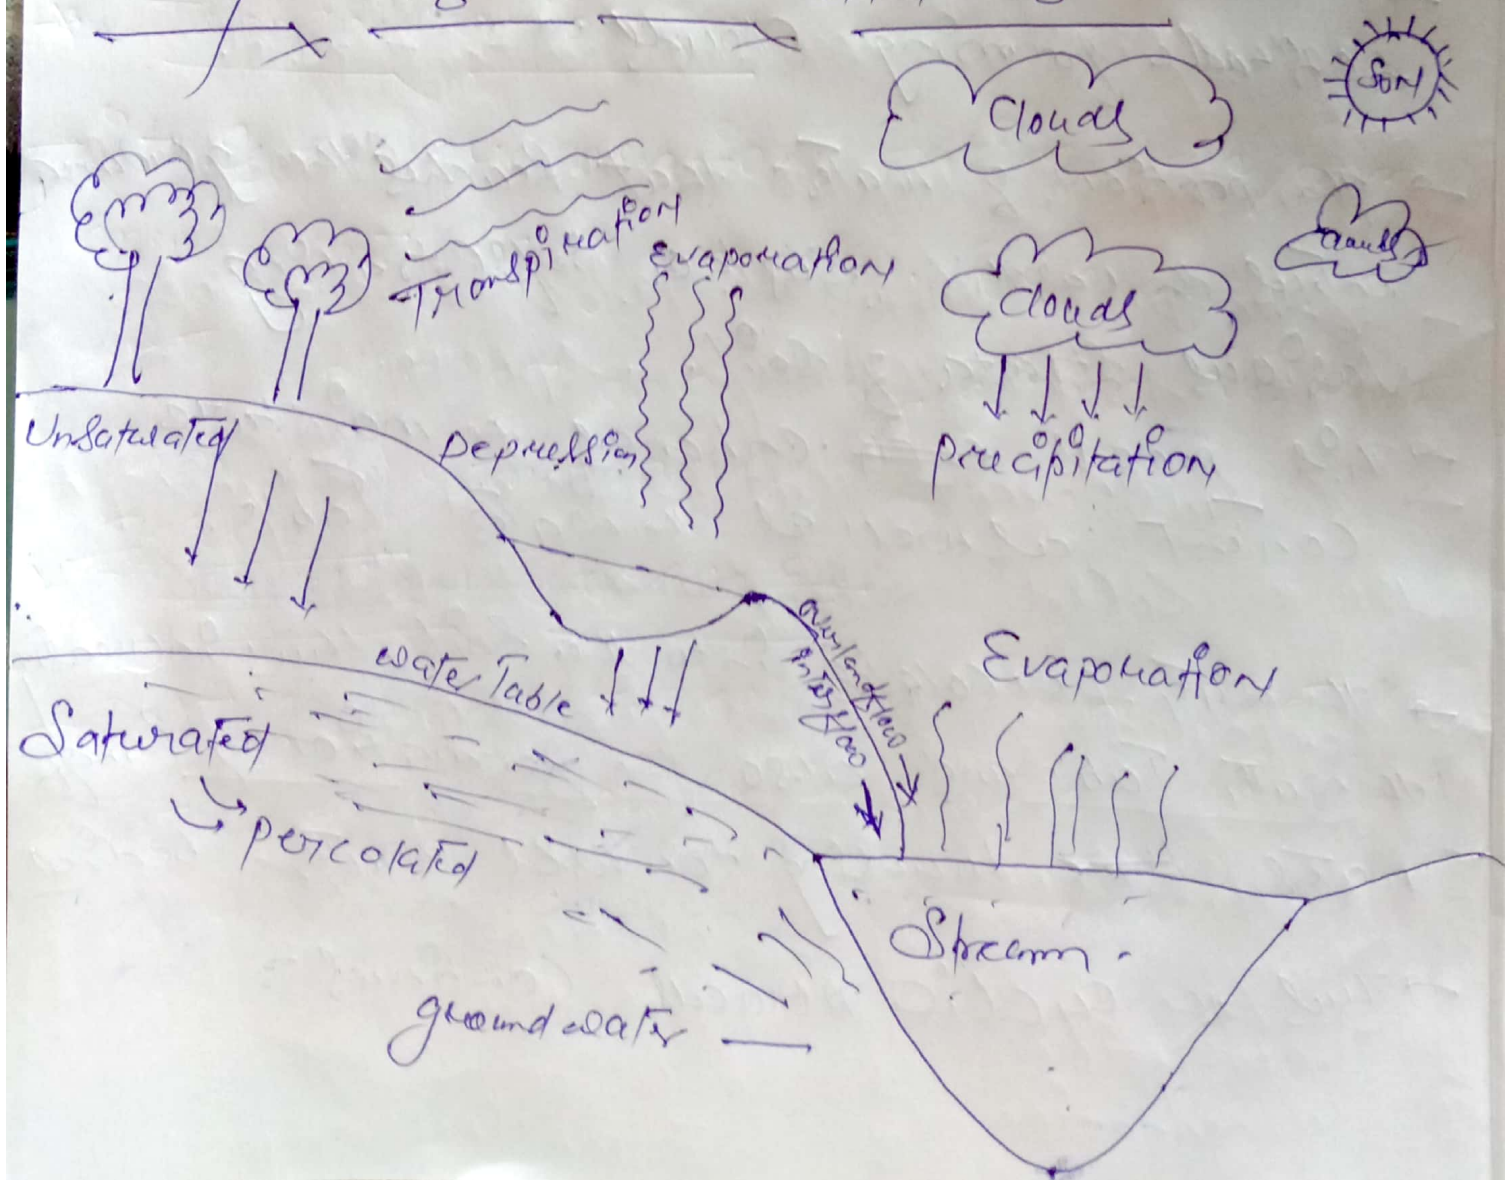 Clouds
SUN
Transpiration
Evaporation
Clouds
Clouds
Unsaturated
Depression
Precipitation
water Table
Overlandflow
Interflow
Evaporation
Saturated
percolated
Stream
groundwater